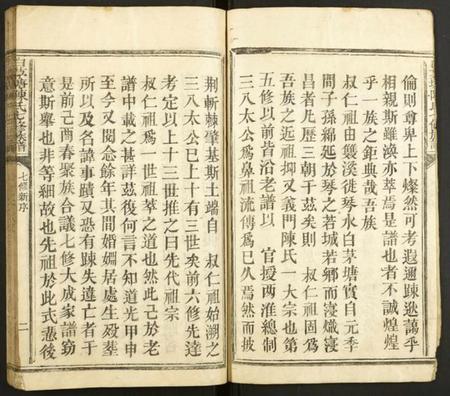 倫則尊卑上下燦然可考遐邇踈逖藹乎
相親斯雖渙亦萃焉是譜也者不誠煌煌
乎一族之鉅典哉吾族
叔仁祖由襲溪徙琴水白茅塘實自元季
間子孫綿延於琴之若城若鄉而寖熾寖
昌者凡歷三朝于茲矣則 叔仁祖固爲
吾族之近祖抑又義門陳氏一大宗也第
五修以前皆沿老譜以 官援兩淮總制
三八太公爲鼻祖流傳爲已久焉然而披
荆斬棘肇基斯土端自 叔仁祖始溯之
三八太公已上十有三世矣前六修先達
考定以上十三世推之曰先代祖宗
叔仁祖爲一世祖萃之道也然此已於老
譜中載之甚詳茲復何言不知道光甲申
至今又閱念餘年其間婚姻居處生歿塟
所以及名諱事蹟又恐有踈失遑亡者于
是前己酉春聚族合議七修大成家譜窈
意斯舉也非等細故也先祖於此式憑後
白茅塘陳氏七修族譜
七修新序
二